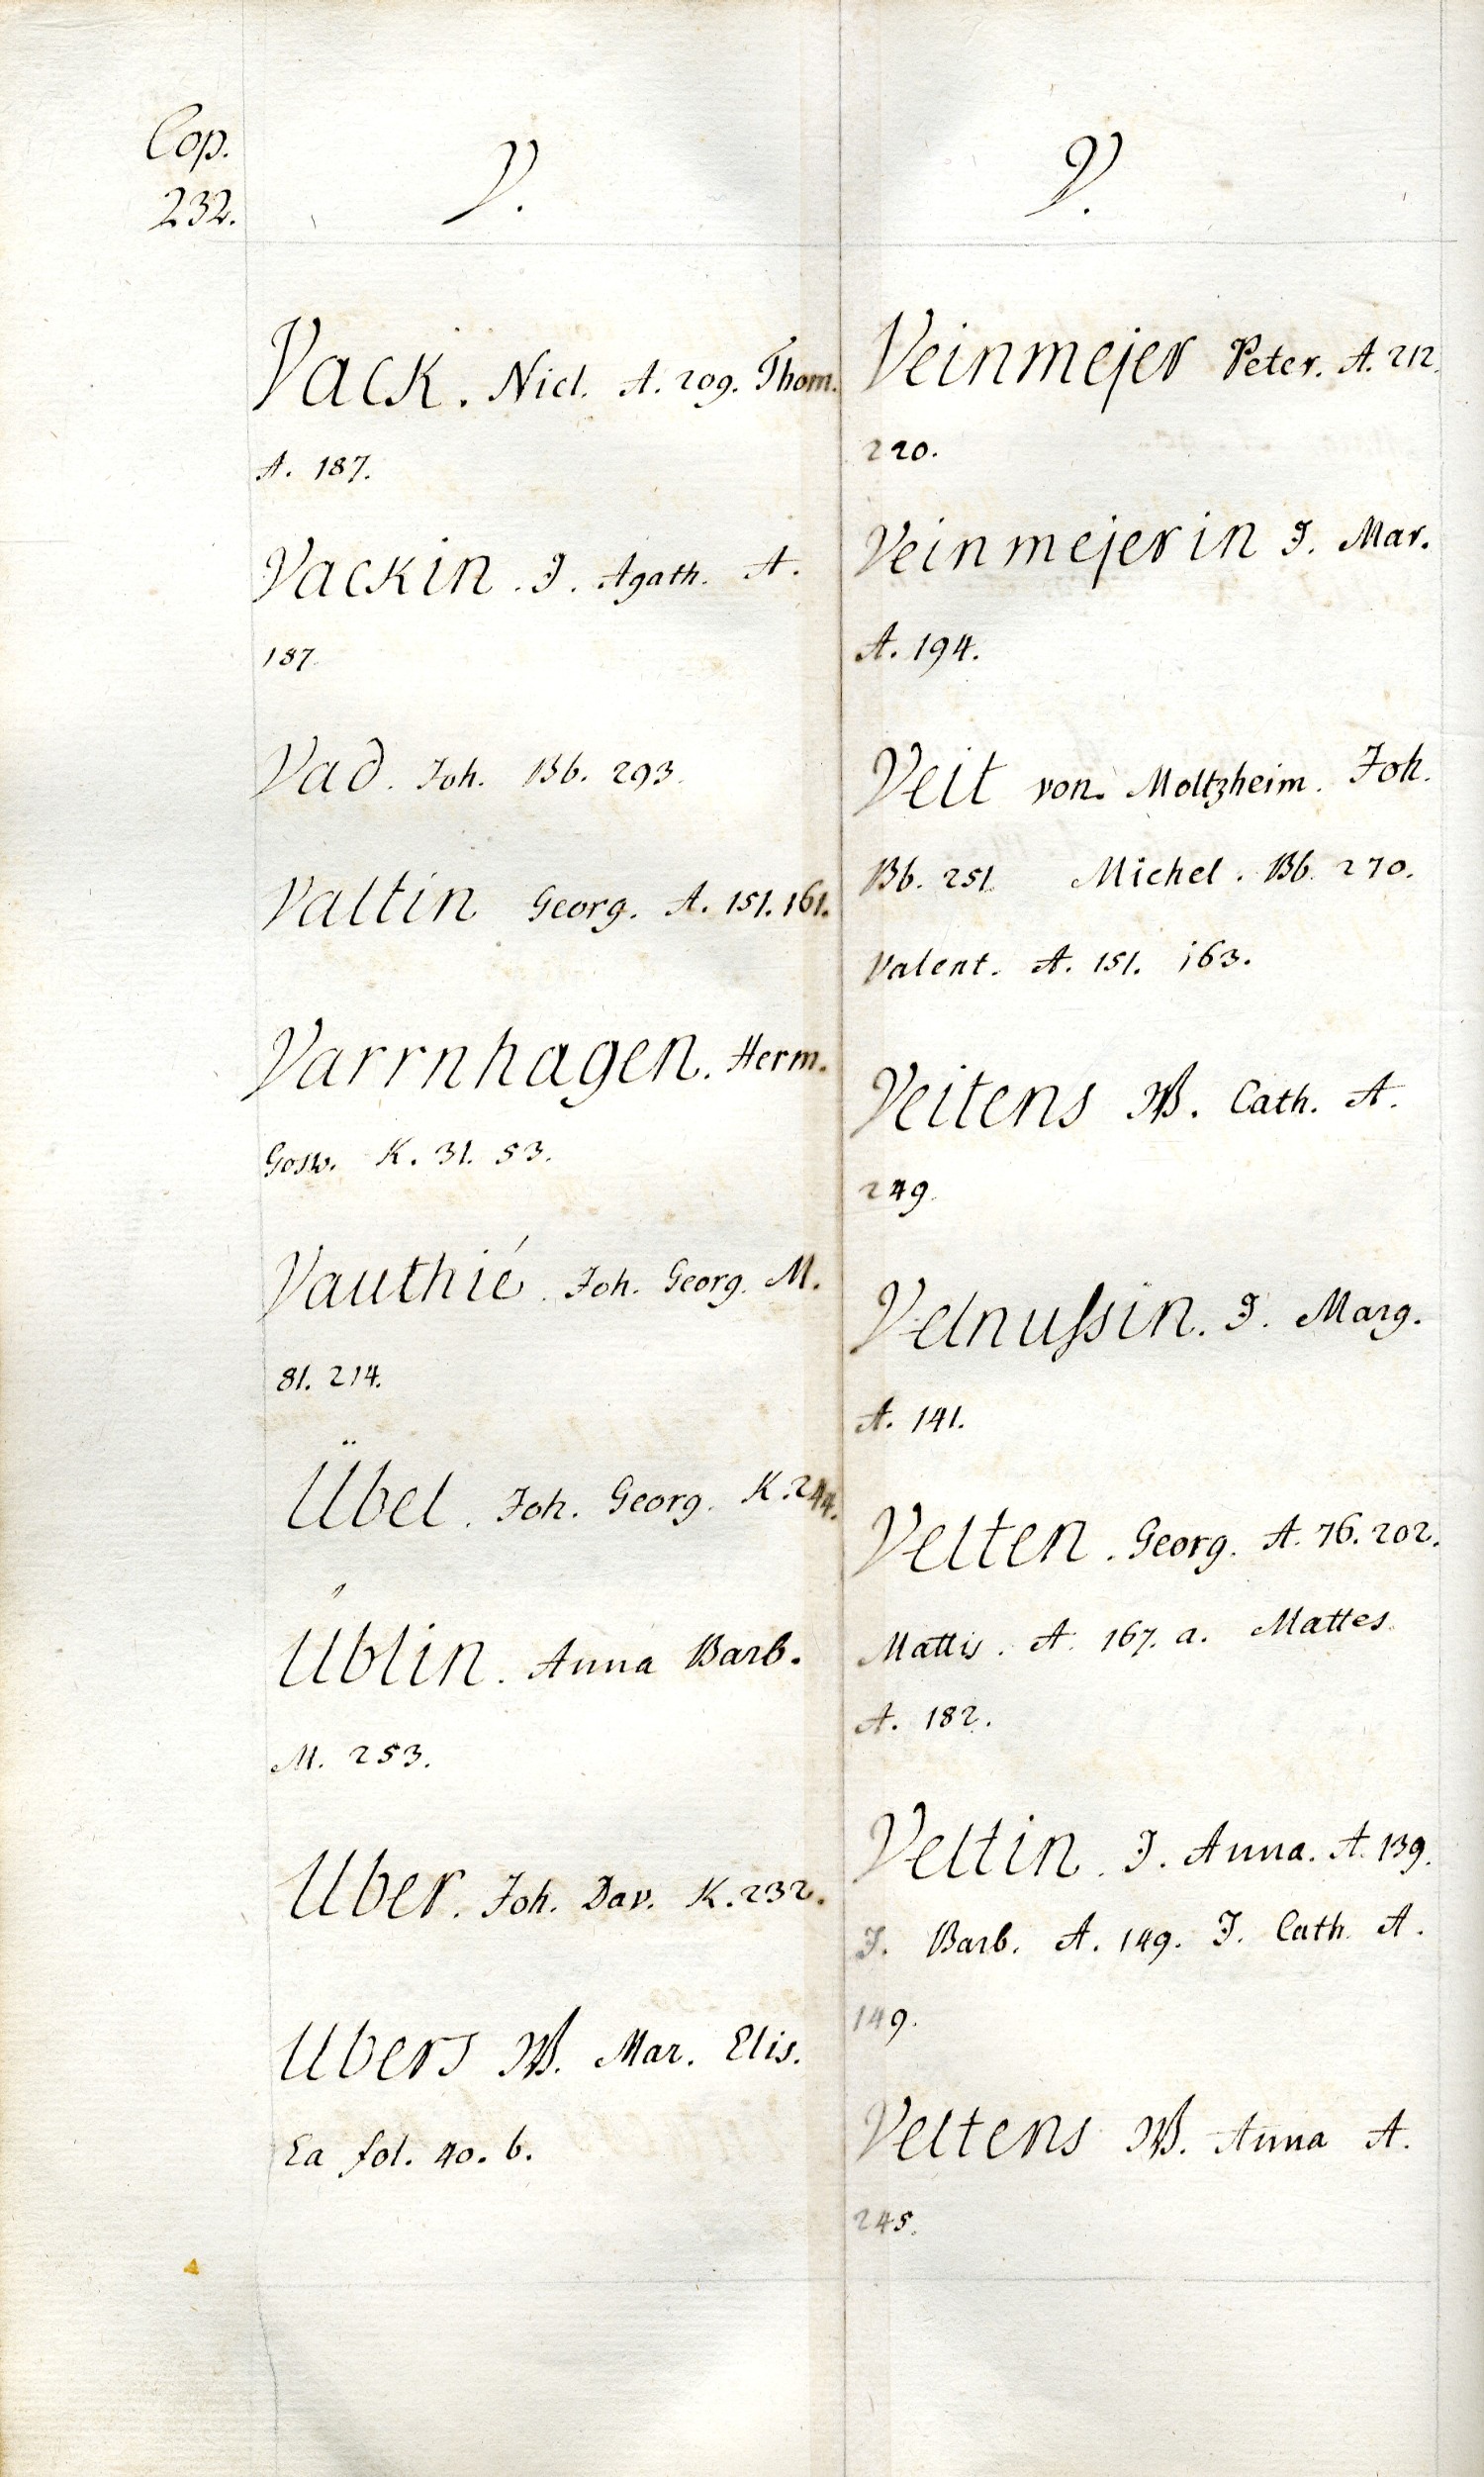 Cop.
232.
V.
Vack. Nicl. A. 209. Thom.
A. 187.
Vackin. J. Agath. A.
187.
Vad. Joh. Bb. 293.
Valtin Georg. A. 151. 161.
Varrnhagen. Herm.
Gosw. K. 31. 53.
Vauthié. Joh. Georg. M.
81. 214.
Übel. Joh. Georg. K. 244.
Üblin. Anna Barb.
M. 253.
Uber. Joh. Dav. K. 232.
Ubers W. Mar. Elis.
Ea fol. 40. b.
V.
Veinmejer Peter. A. 212.
220.
Veinmejerin J. Mar.
A. 194.
Veit von Moltzheim. Joh.
Bb. 251. Michel. Bb. 270.
Valent. A. 151. 163.
Veitens W. Cath. A.
249.
Velnußin. J. Marg.
A. 141.
Velten. Georg. A. 76. 202.
Mattis. A. 167. a. Mattes.
A. 182.
Veltin. J. Anna. A. 139.
J. Barb. A. 149. J. Cath. A.
149.
Veltens W. Anna A.
245.